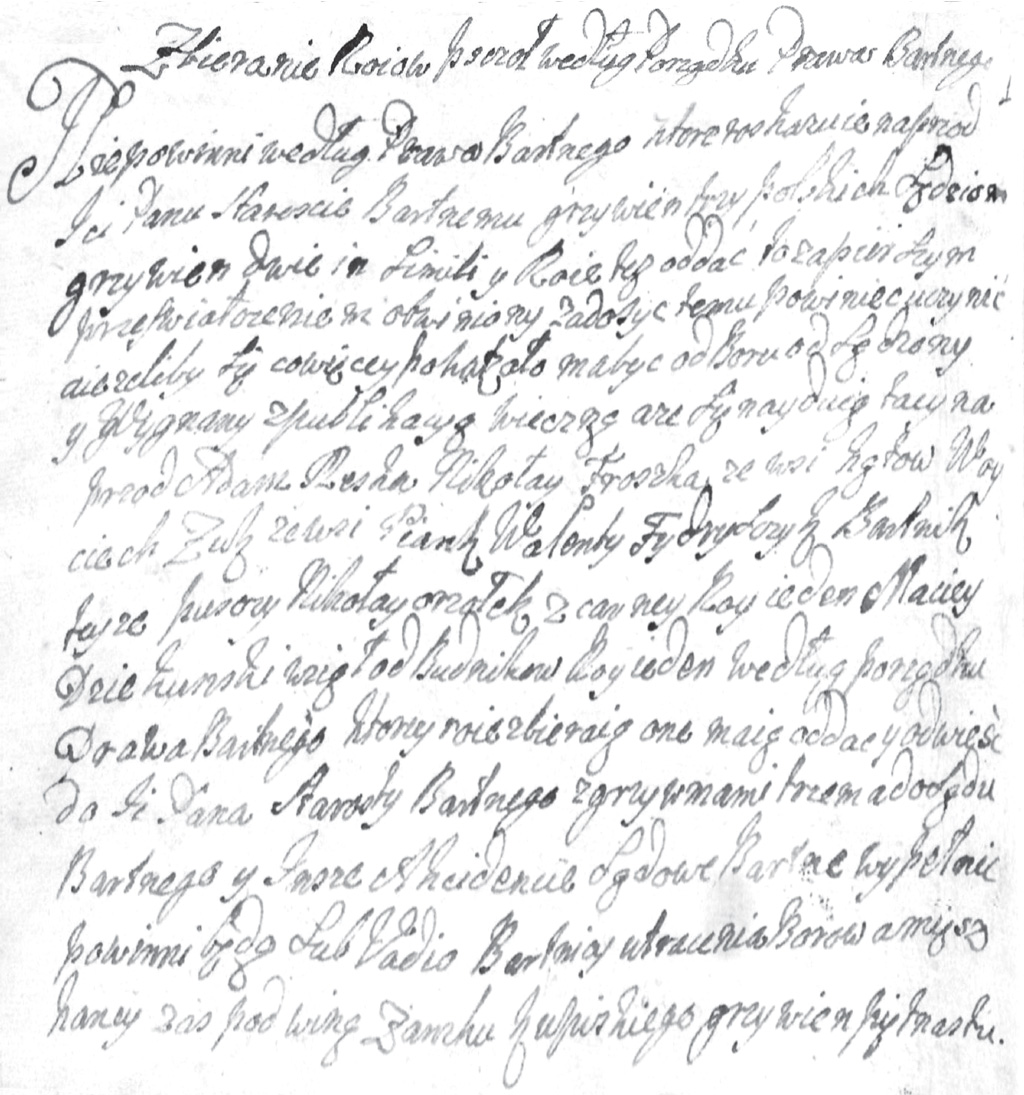 Zbieranie Roiow pszcoł według Porządku Prawa Bartnego
Niepowinni według Prawa Bartnego ktore roskazuie naprzod
Ici Panu Staroscie Bartnemu grzywien trzy polskich Sędziom
grzywien dwie in Simili y Roie też oddać to za pierszym
przeświatczeniem obwiniony zadosyc temu powinien uczynić
aiezeliby się co więcey pokazało ma byc od Boru odsądzony
y Wygnany z publikacyą wieczną aze się nayduią tacy na
przod Adam Peska Mikołay Troszka ze wsi Woy
ciech Zuk ze wsi Piank Walenty Fydryszczyk Bartnik
teyze puszczy Mikołay orzołek z carney Roy ieden Maciey
Dziekunski wziął od Budnikow Roy ieden według porządku
Prawa Bartnego ktorzy roie zbieraią one maią oddac y odwieść
do Ici Pana Starosty Bartnego z grzywnami trzema do Sądu
Bartnego y Insze Akcidencie Sądowe Bartne wypełnic
powinni będą Sub Vadio Bartnicy utracenia Borow a miesz
kancy zas pod winą Zamku grzywien piętnastu.